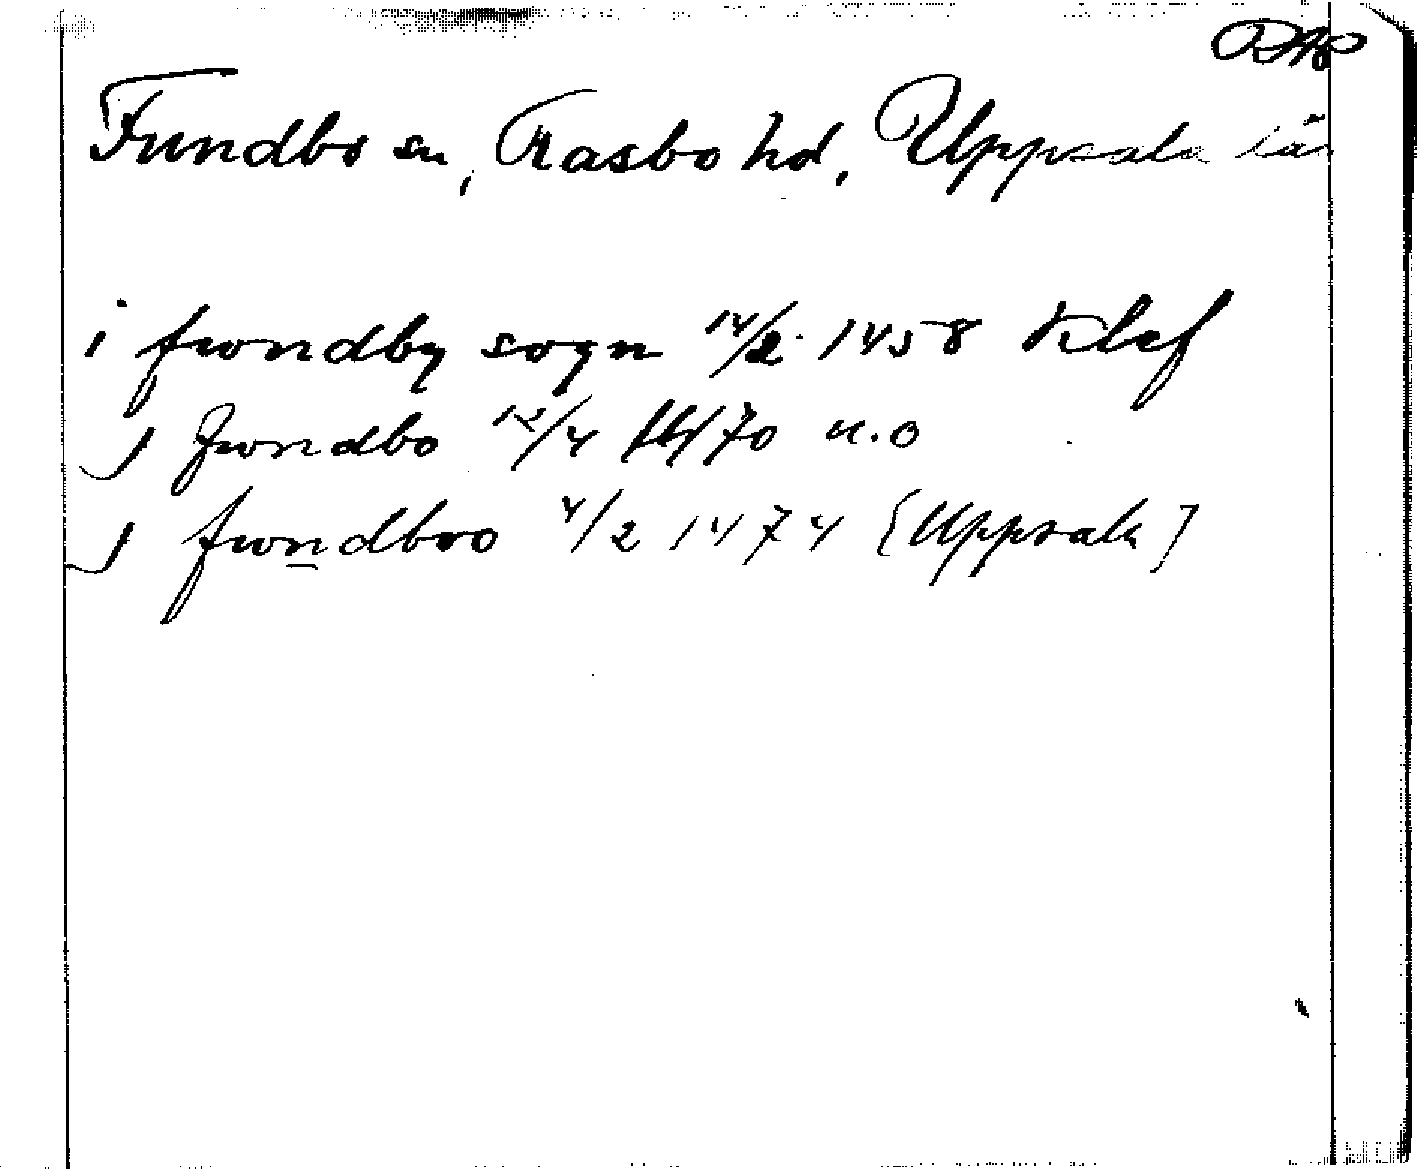 DAP
Fundbo sn, Rasbo hd, Uppsala län
i fwndby sogn 14/2 1458 Klef
j fwndbo 12/4 1470 u.o
j fwndboo 4/2 1474 [Uppsala]